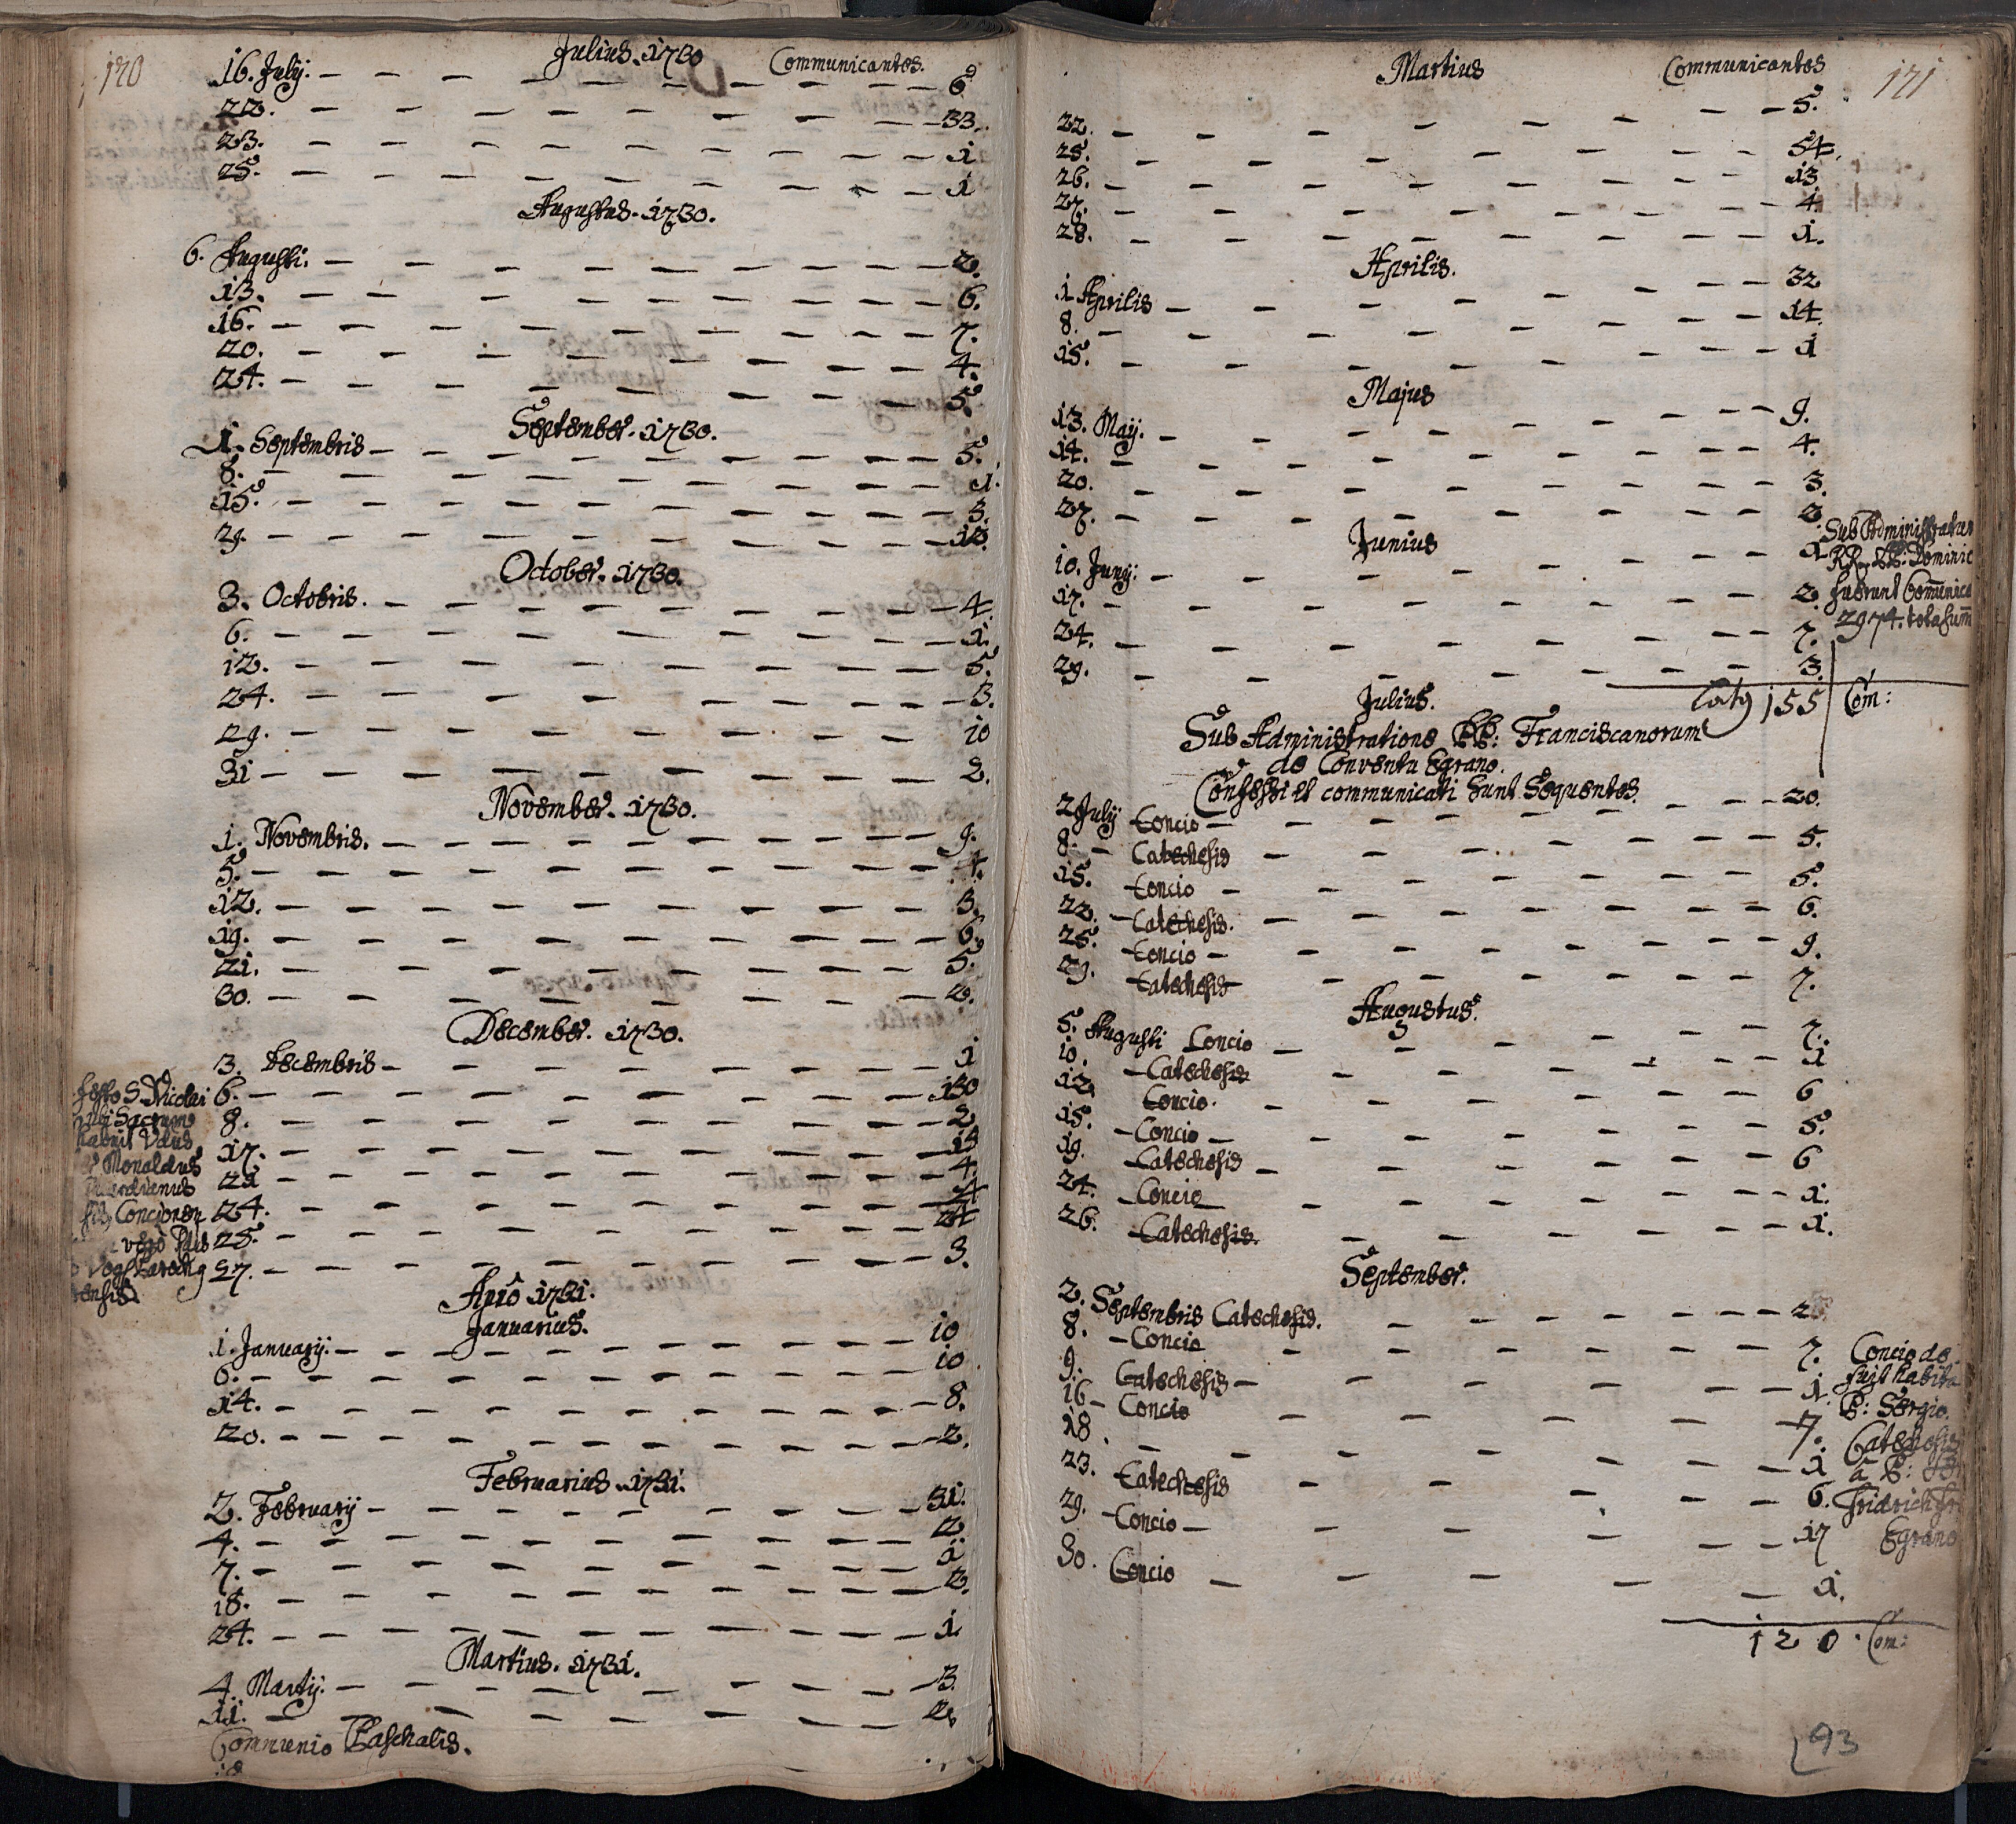 170
Julius. 1730 Communicantes.
16. July. 6
22. 33.
23. 1
25. 1
Augustus. 1730.
6. Augusti. 2.
13. 6.
16. 7.
20. 4.
24. 5.
September. 1730.
1. Septembris 5.
8. 1.
15. 3.
29. 10.
October. 1730.
3. Octobris. 4.
6. 1.
12. 5.
24. 3.
29. 10
31 2.
November. 1730.
1. Novembris. 9.
5. 4.
12. 3.
19. 6.
21. 5.
30. 2.
December. 1730.
3. Decembris 1
festo S. Nicolai 6. 130
Sacrum 8. 2
habuit 17.
Monaldus 21 4.
24.
Concionem 25. 24
vero 27. 3.
Año 1731.
Januarius.
1. Januarij. 10
6. 10
14. 8.
20. 2.
Februarius. 1731.
2. February 31.
4. 2.
7. 1
18. 3.
24. 1
Martius. 1731.
4. Martij. 3.
11. 2.
Communio Paschalis.
18
Martius Communicantes 171
5.
22. 54.
25. 13
26. 4.
27. 1.
28.
Aprilis.
1 Aprilis 32
8. 14.
15. 1
Majus
13. Maij. 9.
14. 4.
20. 3.
27. 2.
Junius
10. Junij. 1
17. 2.
24. 7.
29. 3.
Sub Administratione
RR. PP. Dominic
fuerunt Communica
2974. tota sum̄
Lat9 155 Com:
Julius.
Sub Administratione PP: Franciscanorum
de Conventu Egrano.
Confessi et communicati sunt Sequentes.
2 July Concio 20.
8. Catechesis 5.
15. Concio 5.
22. Catechesis. 6.
25. Concio 9.
29. Catechesis 7.
Augustus.
5. Augusti Concio 7.
10. Catechesis 1
12 Concio. 6
15. Concio 5.
19. Catechesis 6
24. Concio 1.
26. Catechesis. 1.
September.
2. Septembris Catechesis. 2
8. Concio 7.
9. Catechesis 1.
16 Concio 7.
18 1
23. Catechesis 6.
29. Concio 17
30. Concio 1.
Concio de
fuit habita
P: Sergio.
Catechesis
à P:
Fridrich
Egrano
120. Com:
93